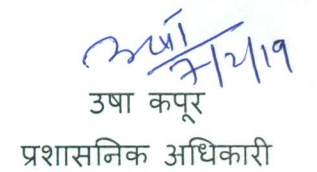 उषा
7/2/19
उषा कपूर
प्रशासनिक अधिकारी